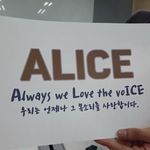 ALICE
Always we Love the voICE
우리는 언제나 그 목소리를 사랑한다.